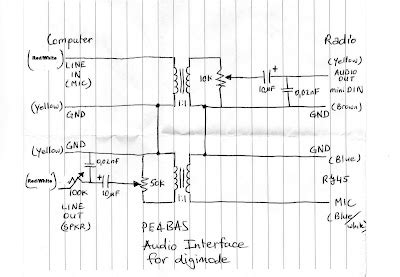 Computer
Radio
Red/White
LINE
IN
(MIC)
10K
+
10µF
(Yellow)
AUDIO
OUT
0,02nF
miniDIN
(Yellow)
GND
1:1
(Brown)
GND
(Yellow)
GND
GND
(Blue)
0,02nF
Red/White
100K
+
10µF
50K
1:1
RJ45
LINE
OUT
(SPKR)
MIC
(Blue/
white)
PE4BAS
Audio Interface
for digimode